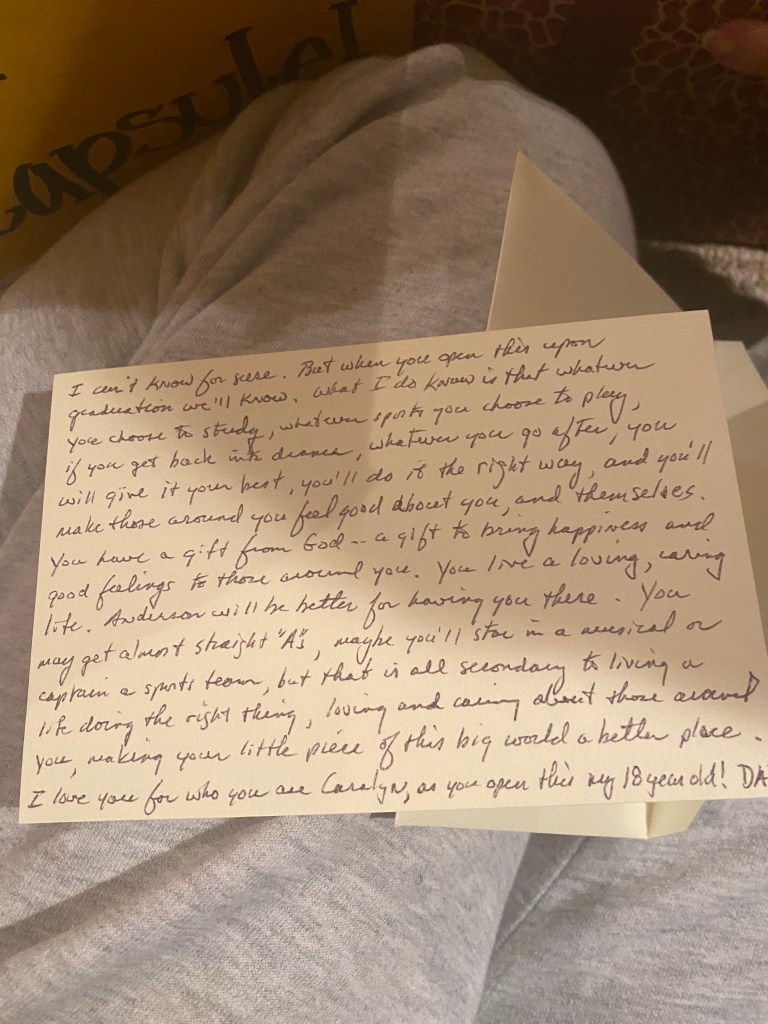 Capsule!
I can't know for sure. But when you open this upon
graduation we'll know. What I do know is that whatever
you choose to study, whatever sports you choose to play,
if you get back into drama, whatever you go after, you
will give it your best, you'll do it the right way, and you'll
make those around you feel good about you, and themselves.
You have a gift from God -- a gift to bring happiness and
good feelings to those around you. You live a loving, caring
life. Anderson will be better for having you there. You
may get almost straight "A"s, maybe you'll star in a musical or
captain a sports team, but that is all secondary to living a
life doing the right thing, loving and caring about those around
you, making your little piece of this big world a better place.
I love you for who you are Caralyn, as you open this my 18 year old! DA